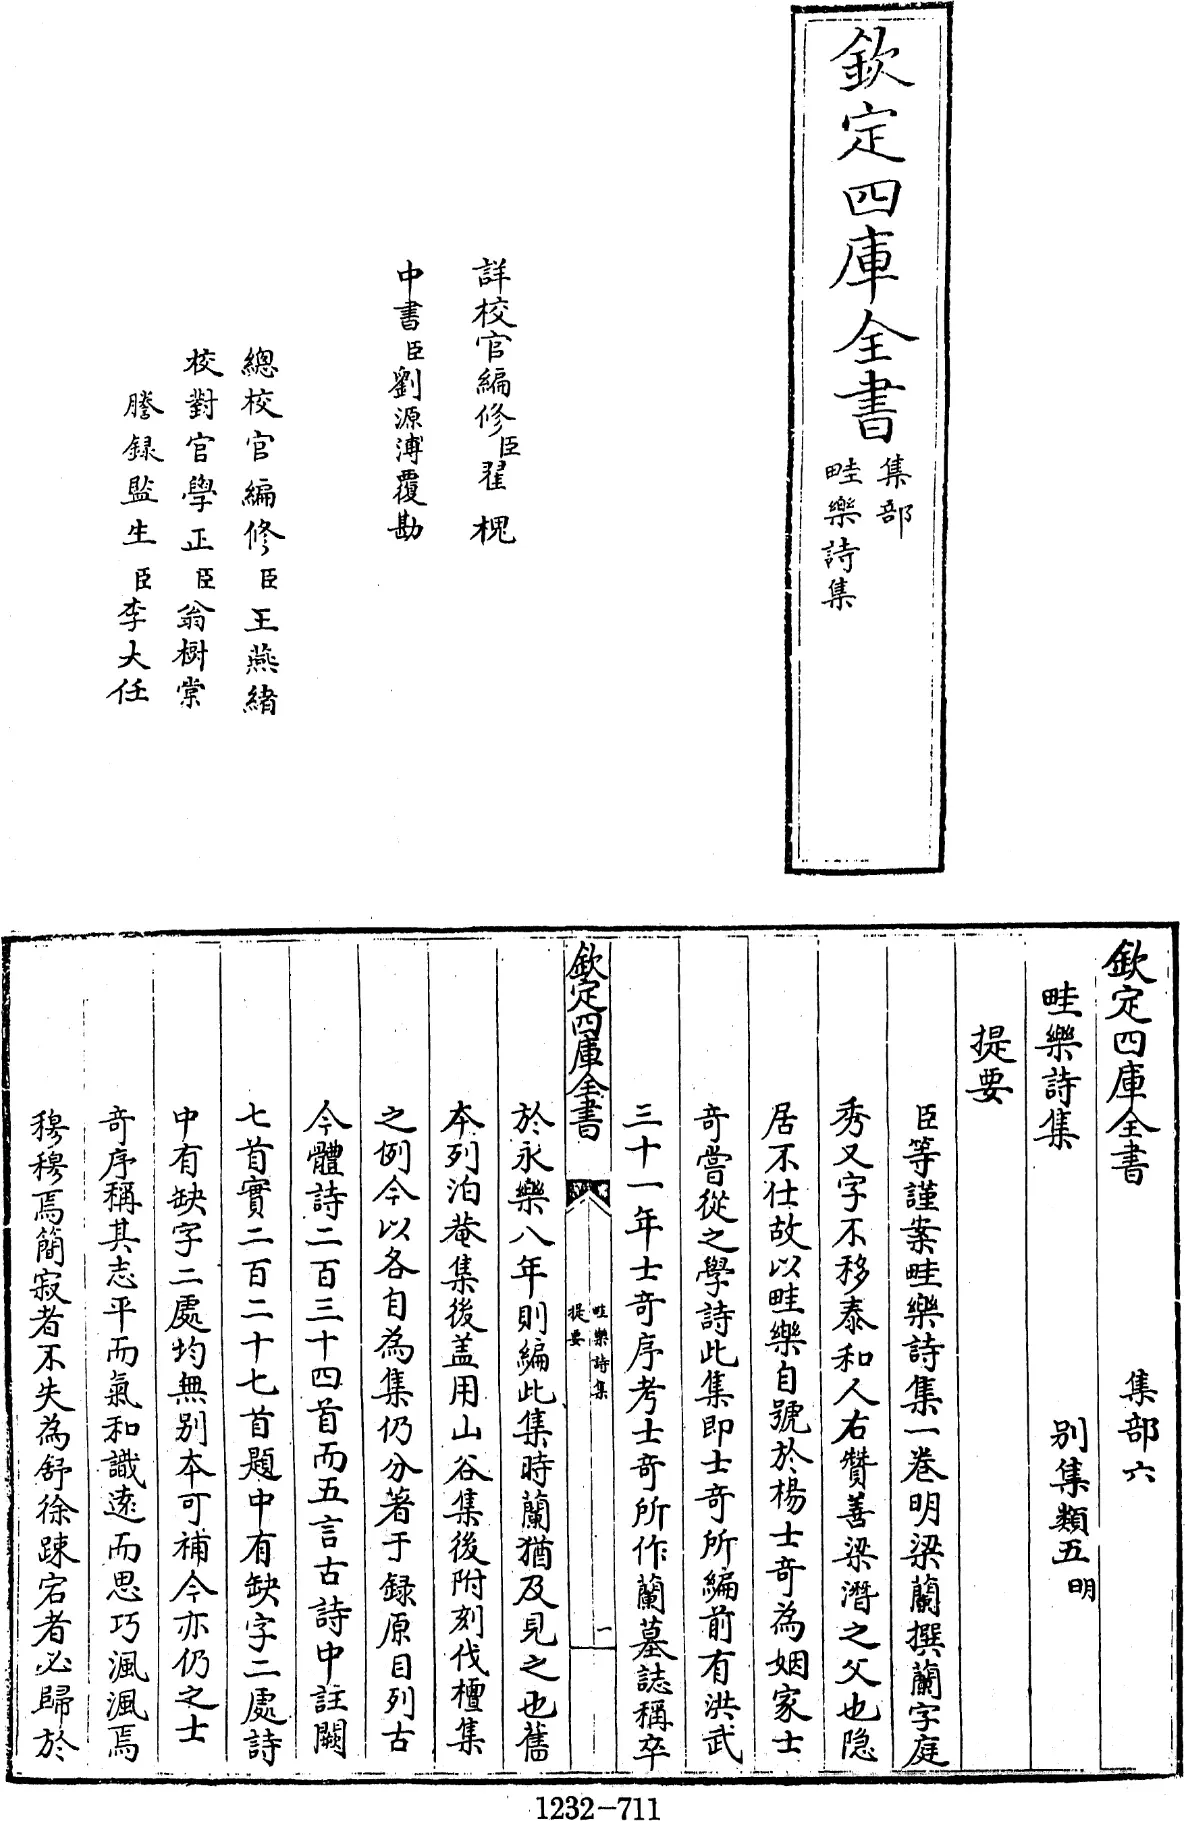 欽定四庫全書
集部
畦樂詩集
詳校官編修臣翟槐
中書臣劉源溥覆勘
總校官編修臣王燕緒
校對官學正臣翁樹棠
謄録監生臣李大任
欽定四庫全書 集部六
畦樂詩集 别集類五明
提要
臣等謹案畦樂詩集一卷明梁蘭撰蘭字庭
秀又字不移泰和人右贊善梁潛之父也隐
居不仕故以畦樂自號於楊士竒為姻家士
竒嘗從之學詩此集即士竒所編前有洪武
三十一年士竒序考士竒所作蘭墓誌稱卒
欽定四庫全書
畦樂詩集
提要
一
於永樂八年則編此集時蘭猶及見之也舊
本列泊菴集後盖用山谷集後附刻伐檀集
之例今以各自為集仍分著于録原目列古
今體詩二百三十四首而五言古詩中註闕
七首實二百二十七首題中有缺字二處詩
中有缺字二處均無别本可補今亦仍之士
竒序稱其志平而氣和識逺而思巧渢渢焉
穆穆焉簡寂者不失為舒徐踈宕者必歸於
1232-711